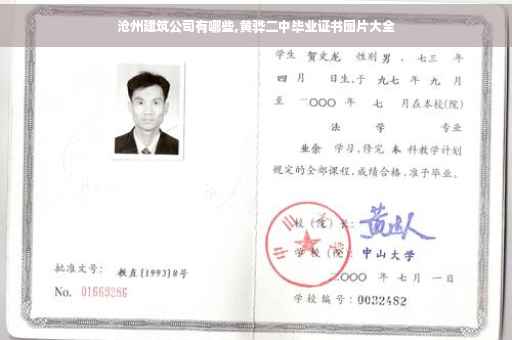 沧州建筑公司有哪些,黄骅二中毕业证书图片大全
学生 贺文龙 性别 男 、七三 年
四 月 日生,于 九七 年 九 月
至 二〇〇〇 年 七 月在本校(院)
法 学 专业
业余 学习,修完 本 科教学计划
规定的全部课程,成绩合格,准予毕业。
校(院)长:
学校(院): 中山大学
二〇〇〇 年 七 月 一 日
批准文号: 教直[1993]8号
No. 01669286
学校编号: 0032482